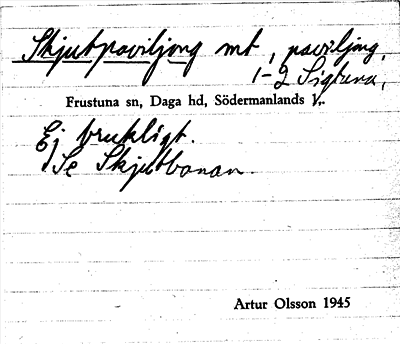 Skjutpaviljong mt, paviljong,
1-2 Sigtuna,
Frustuna sn, Daga hd, Södermanlands l.
Ej brukligt.
Se Skjutbanan.
Artur Olsson 1945